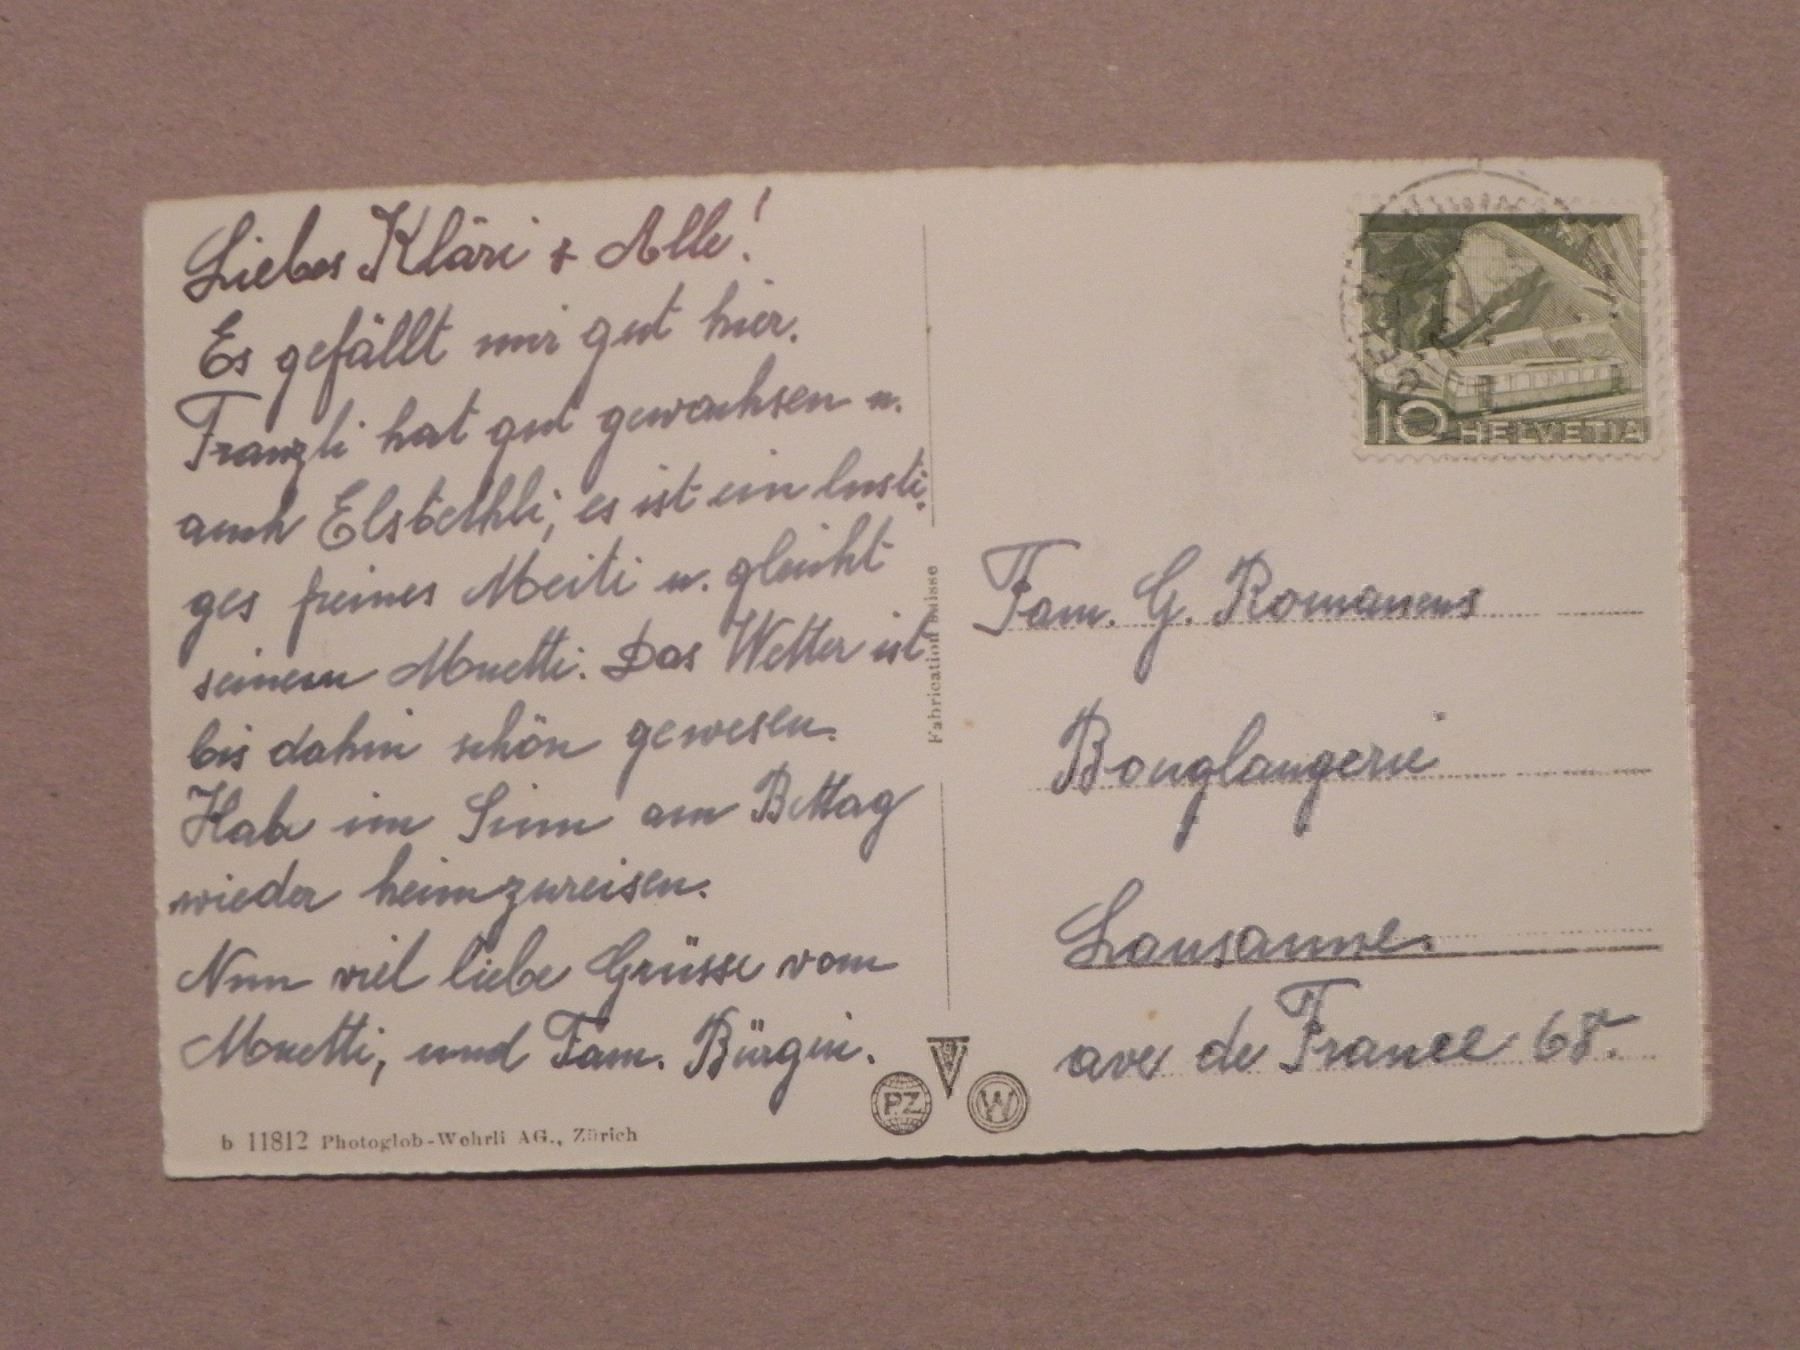 Liebes Kläri + Alle!
Es gefällt mir gut hier.
Franzli hat gut gewachsen u.
auch Elsbethli, es ist ein lusti-
ges feines Meiti u. gleicht
seinem Muetti. Das Wetter ist
bis dahin schön gewesen.
Hab im Sinn am Bettag
wieder heimzureisen.
Nun viel liebe Grüsse vom
Muetti, und Fam. Bürgin.
b 11812 Photoglob-Wehrli AG., Zürich
Fabrication Suisse
PZ
W
10 HELVETIA
Fam. G. Romanens
Bouglangerie
Lausanne.
ave de France 68.